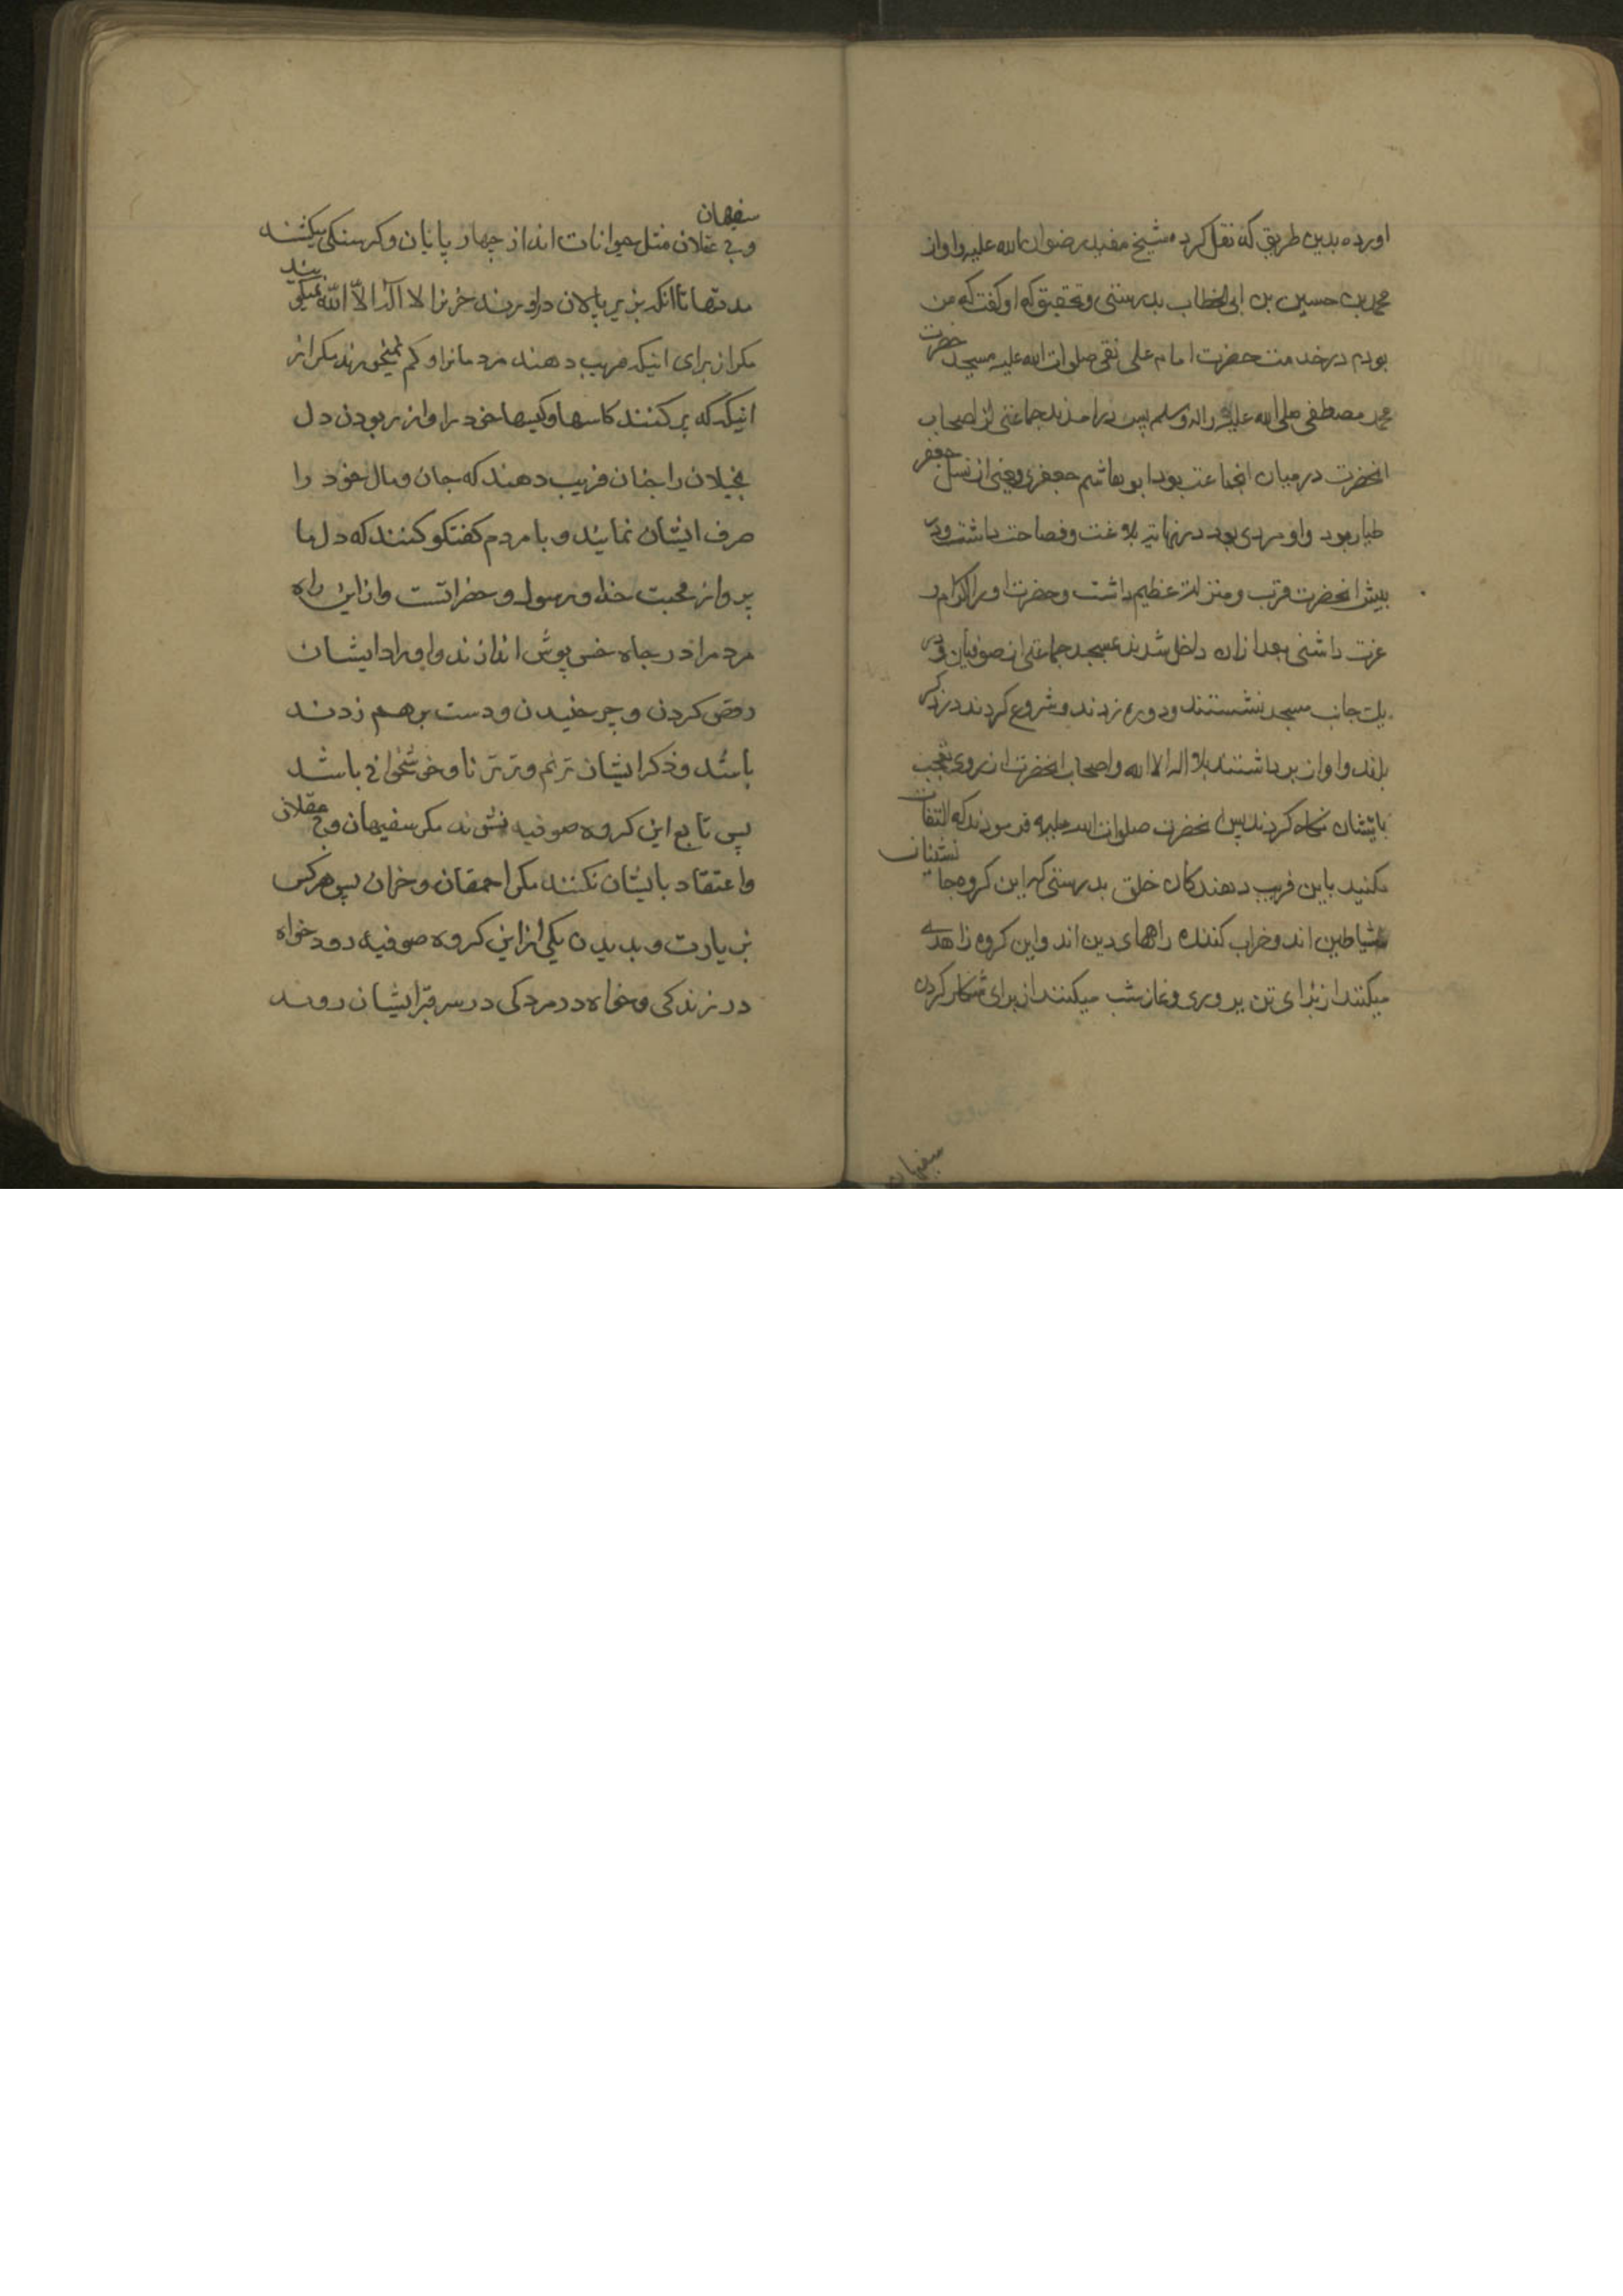 اورده بدین طریق که نقل کرده شیخ مفید رضوان الله علیه و او از
محمد بن حسین بن ابی الخطاب بدرستی و تحقیق که او کفت که من
بودم در خدمت حضرت امام علی نقی صلوات الله علیه مسجد حضرت
محمد مصطفی صلی الله علیه واله وسلم پس درامدند جماعتی از اصحاب
انحضرت در میان انجماعت بود ابو هاشم جعفری و یعنی از نسل جعفر
طیار بود و او مردی بود در نهایت بلاغت و فصاحت داشت و در
پیش انحضرت قرب و منزلت عظیم داشت و حضرت او را اکرام و
عزت داشتی بعد از ان داخل شدند بمسجد جماعتی از صوفیان و در
یک جانب مسجد نشستند و دوره زدند و شروع کردند در ذکر
بلند و اواز برداشتند بلا اله الا الله و اصحاب انحضرت از روی تعجب
بایشان نکاه کردند پس انحضرت صلوات الله علیه فرمودند که التفات
مکنید باین فریب دهندکان خلق بدرستی که این کروه جا نشینان
شیاطین اند و خراب کننده راههای دین اند و این کروه زاهدی
میکنند از برای تن پروری و نماز شب میکنند از برای شکار کردن
سفیهان
سفیهان
و بی عقلان مثل حیوانات اند از چهار پایان و کرسنکی میکشند
مدتها تا انکه بزیر پالان دراورند خر نرا لا اله الا الله نمیکویند
مکر از برای اینکه فریب دهند مردمانرا و کم نمیخورند مکر از
اینکه که پر کنند کاسها و کیسها خود را و از ربودن دل
بخیلان را چنان فریب دهند که جان و مال خود را
صرف ایشان نمایند و با مردم کفتکو کنند که دل ما
پر و از محبت خدا و رسول و حضراتست و از این راه
مردم را در چاه خس پوش اندازند و اوراد ایشان
رقص کردن و چرخیدن و دست برهم زدند
باشد و ذکر ایشان ترنم و ترترنا و خوشخوانی باشد
پس تابع این کروه صوفیه نشوند مکر سفیهان و بی عقلان
و اعتقاد بایشان نکنند مکر احمقان و خران پس هر کس
بزیارت و بدیدن یکی از این کروه صوفیه رود خواه
در زندکی و خواه در مردکی در سر قبر ایشان روند